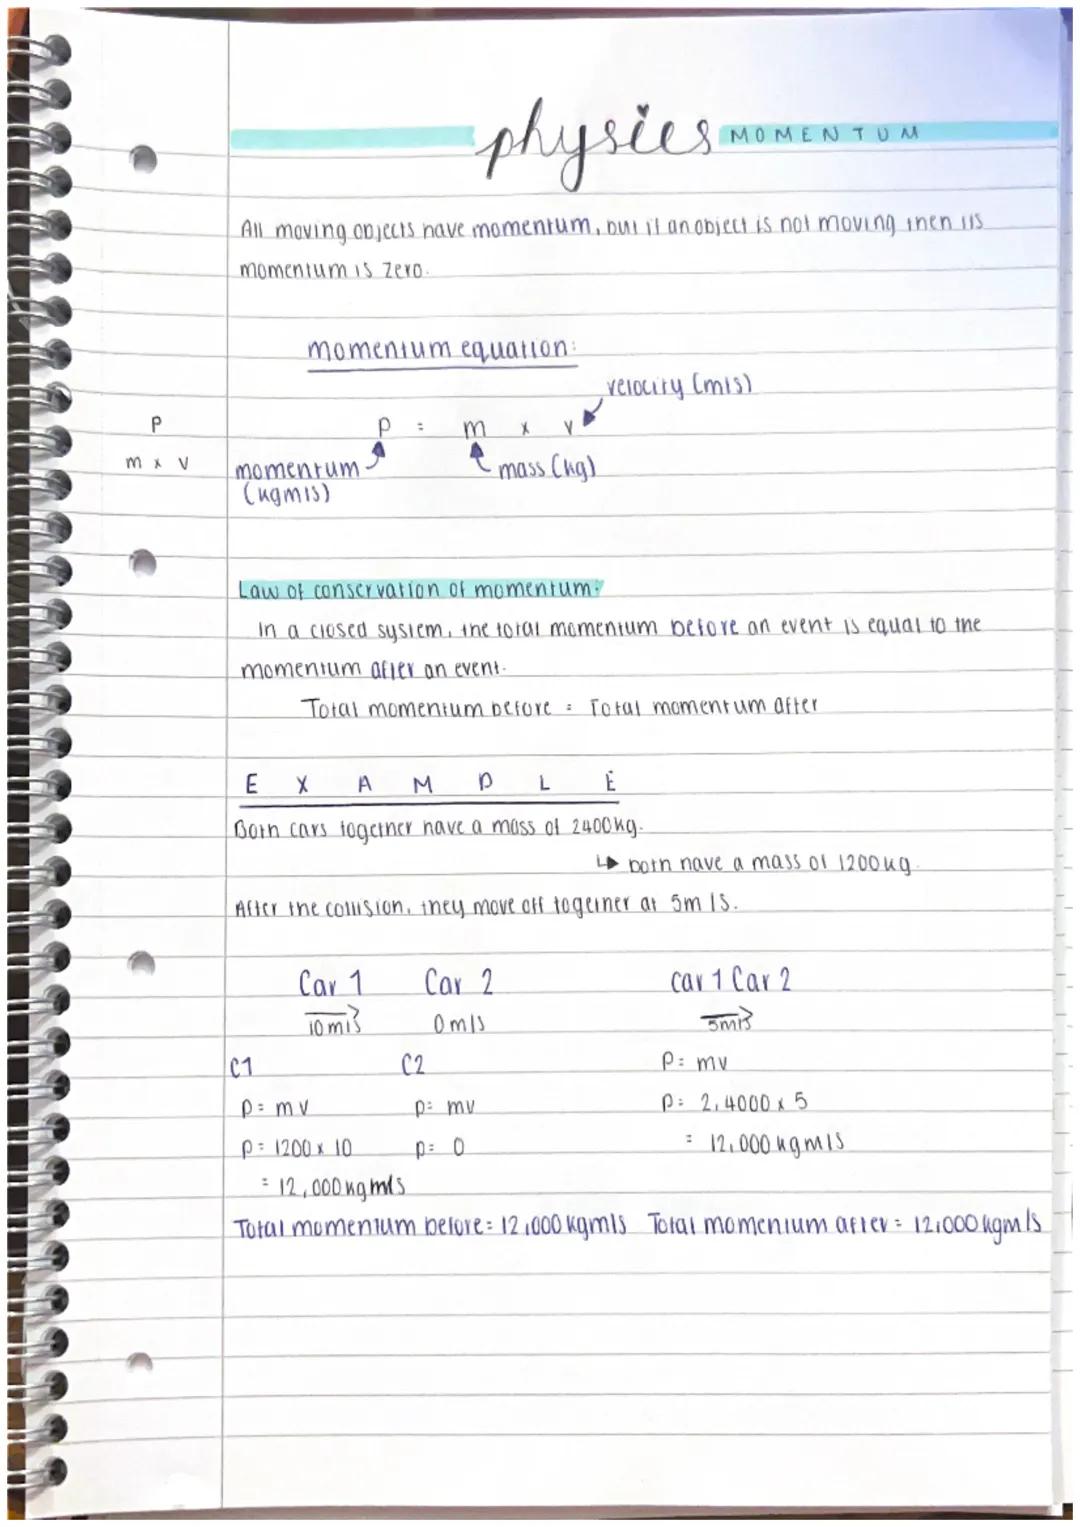 physics MOMENTUM
All moving objects have momentum, but if an object is not moving then its
momentum is zero.
momentum equation:
velocity (m/s)
P
p = m x v
m x v
momentum
mass (kg)
(kgm/s)
Law of conservation of momentum:
In a closed system, the total momentum before an event is equal to the
momentum after an event.
Total momentum before = Total momentum after
EXAMPLE
Both cars together have a mass of 2400kg.
↳ both have a mass of 1200kg.
After the collision, they move off together at 5m/s.
Car 1 Car 2 car 1 Car 2
10m/s 0m/s 5m/s
C1 C2 P= mv
p= mv p= mv p= 2,4000 x 5
p= 1200 x 10 p= 0 = 12,000 kgm/s
= 12,000 kgm/s
Total momentum before= 12,000 kgm/s Total momentum after = 12,000 kgm/s